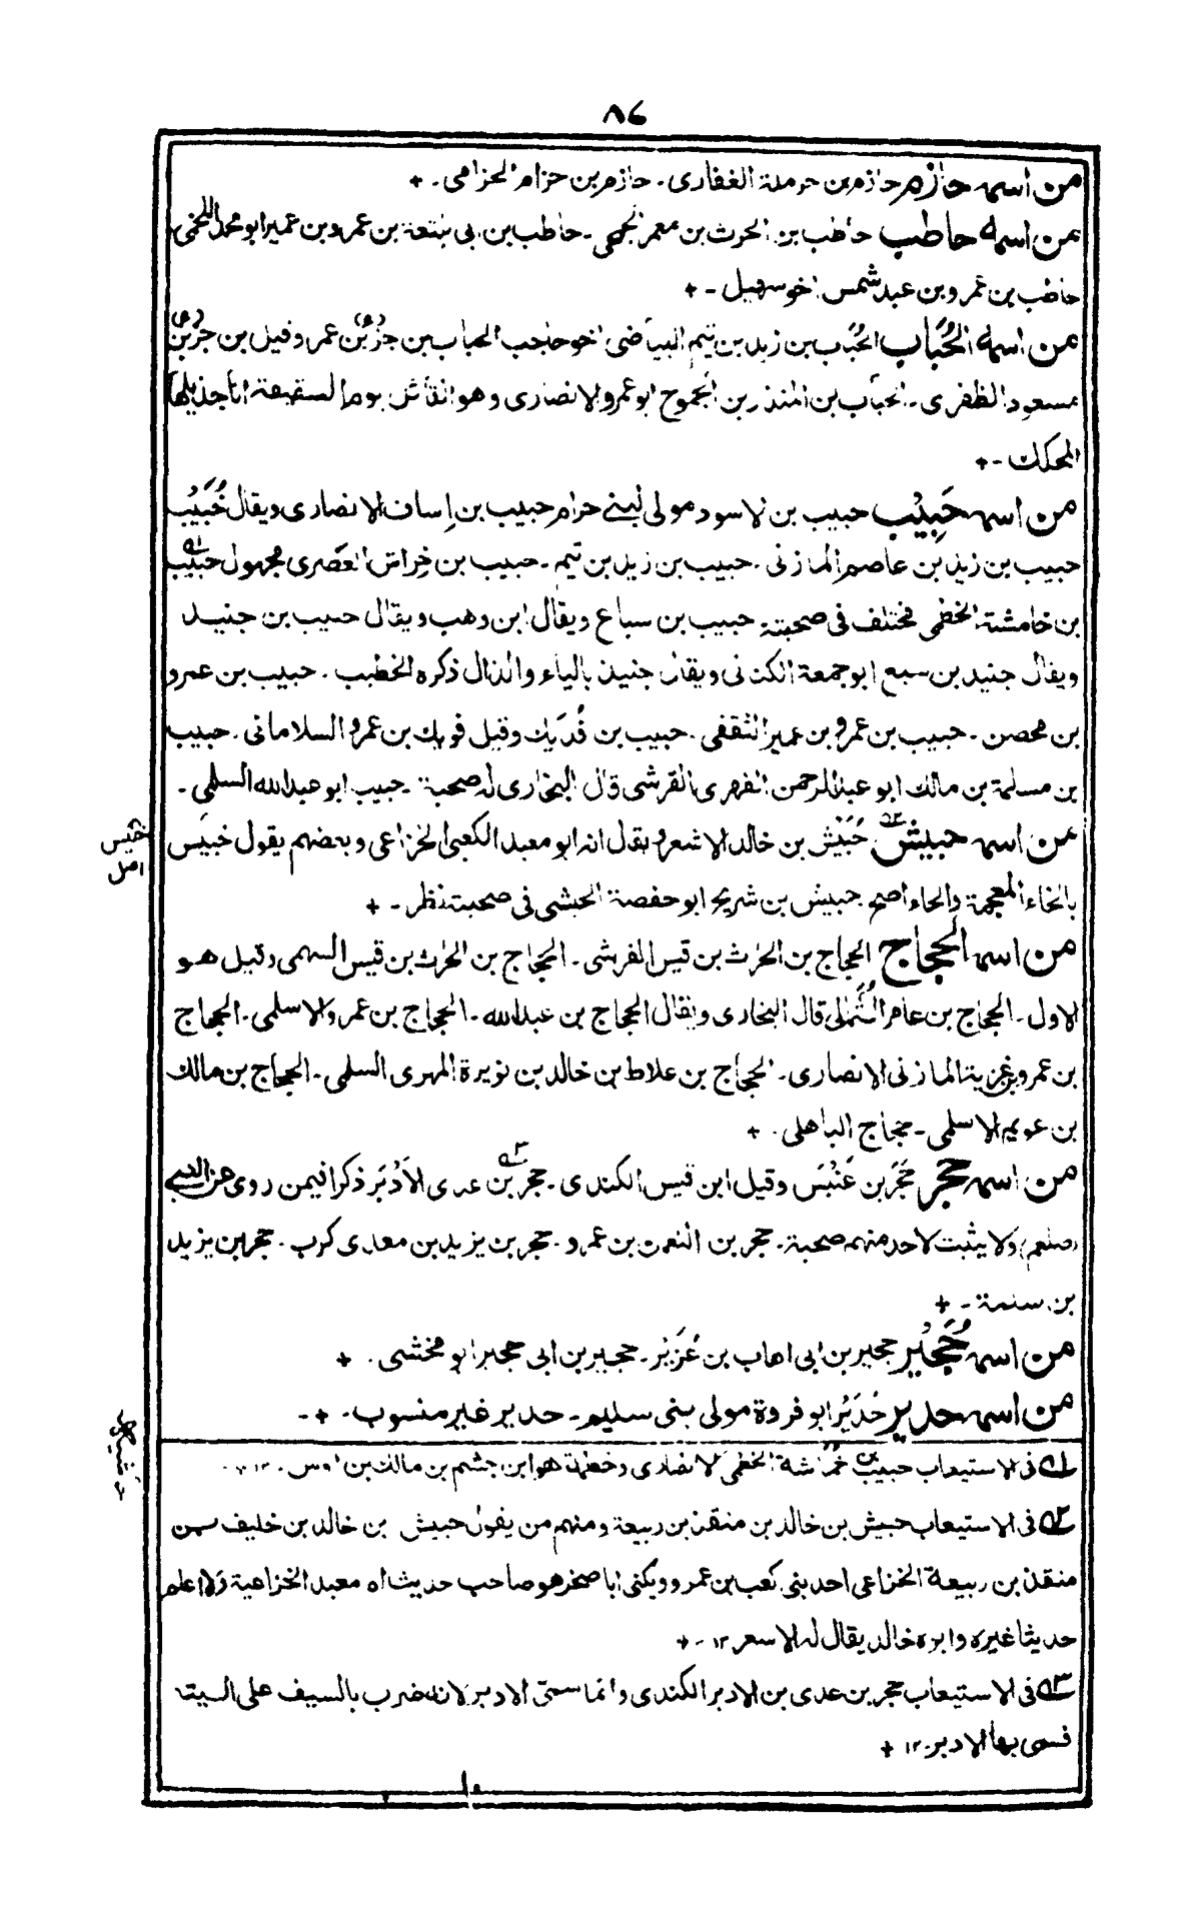 ٨٦
من اسمه حازم حازم بن حرملة الغفاري ـ حازم بن حزام الحزامي ـ +
من اسمه حاطب حاطب بن الحرث بن معمر الجمحي ـ حاطب بن ابي بلتعة بن عمرو بن عمير ابو محمد اللخمي
حاطب بن عمرو بن عبد شمس اخو سهيل ـ +
من اسمه الحُبَاب الحُبَاب بن زيد بن تيم البياضي اخو حاجب الحباب بن جزء بن عمر وقيل بن جزء بن
مسعود الظفري ـ الحباب بن المنذر بن الجموح ابو عمرو الانصاري وهو القائل يوم السقيفة انا جذيلها
المحكك ـ +
من اسمه حَبِيْب حبيب بن الاسود مولى لبني حرام حبيب بن اِساف الانصاري ويقال خُبَيْب
حبيب بن زيد بن عاصم المازني ـ حبيب بن زيد بن تيم ـ حبيب بن خِراش العَصَري مجهول حبيب
بن خماشة الخطمي مختلف في صحبته حبيب بن سباع ويقال ابن وهب ويقال حبيب بن جنيد
ويقال جنيد بن سبع ابو جمعة الكناني ويقال جنيذ بالياء والذال ذكره الخطيب ـ حبيب بن عمرو
بن محصن ـ حبيب بن عمرو بن عمير الثقفي ـ حبيب بن فُدَيك وقيل فويك بن عمرو السلاماني ـ حبيب
بن مسلمة بن مالك ابو عبد الرحمن الفهري القرشي قال البخاري له صحبة ـ حبيب ابو عبد الله السلمي ـ
من اسمه حبيش حُبَيْش بن خالد الاشعر يقال انه ابو معبد الكعبي الخزاعي وبعضهم يقول خبيس
بالخاء المعجمة والحاء اصح حبيش بن شريح ابو حفصة الحبشي في صحبته نظر ـ +
من اسمه الحجاج الحجاج بن الحرث بن قيس القرشي ـ الحجاج بن الحرث بن قيس السهمي وقيل هو
الاول ـ الحجاج بن عامر الثُّمَالي قال البخاري ويقال الحجاج بن عبد الله ـ الحجاج بن عمرو الاسلمي ـ الحجاج
بن عمرو بن غزية المازني الانصاري ـ الحجاج بن علاط بن خالد بن نويرة المهري السلمي ـ الحجاج بن مالك
بن عويم الاسلمي ـ حجاج الباهلي ـ +
من اسمه حجر حَجَر بن عَنْبَس وقيل ابن قيس الكندي ـ حجر بن عدي الاَدْبَر ذكرا فيمن روى عن النبي
(صلعم) ولا يثبت لاحد منهم صحبة ـ حجر بن النعمن بن عمرو ـ حجر بن يزيد بن معدي كرب ـ حجر بن يزيد
بن سلمة ـ +
من اسمه حُجَيْر حجير بن ابي اهاب بن عُزَيْز ـ حجير بن ابي حجير ابو مخشى ـ +
من اسمه حدير حُدَيْر ابو فروة مولى بني سليم ـ حدير غير منسوب ـ + ـ
١ في الاستيعاب حبيب بن خُمَاشة الخطمي الانصاري وخطمة هو ابن جشم بن مالك بن اوس ـ ١٢
٢ في الاستيعاب حبيش بن خالد بن منقذ بن ربيعة ومنهم من يقول حبيش بن خالد بن خليف بن
منقذ بن ربيعة الخزاعي احد بني كعب بن عمرو ويكنى ابا صخر هو صاحب حديث ام معبد الخزاعية ولا اعلم
حديثا غيره وابوه خالد يقال له الاسعر ١٢ ـ +
٣ في الاستيعاب حجر بن عدي بن الادبر الكندي وانما سمي الادبر لانه ضرب بالسيف على اليته
فسمي بها الادبر ـ ١٢ +
خنيس
اصل